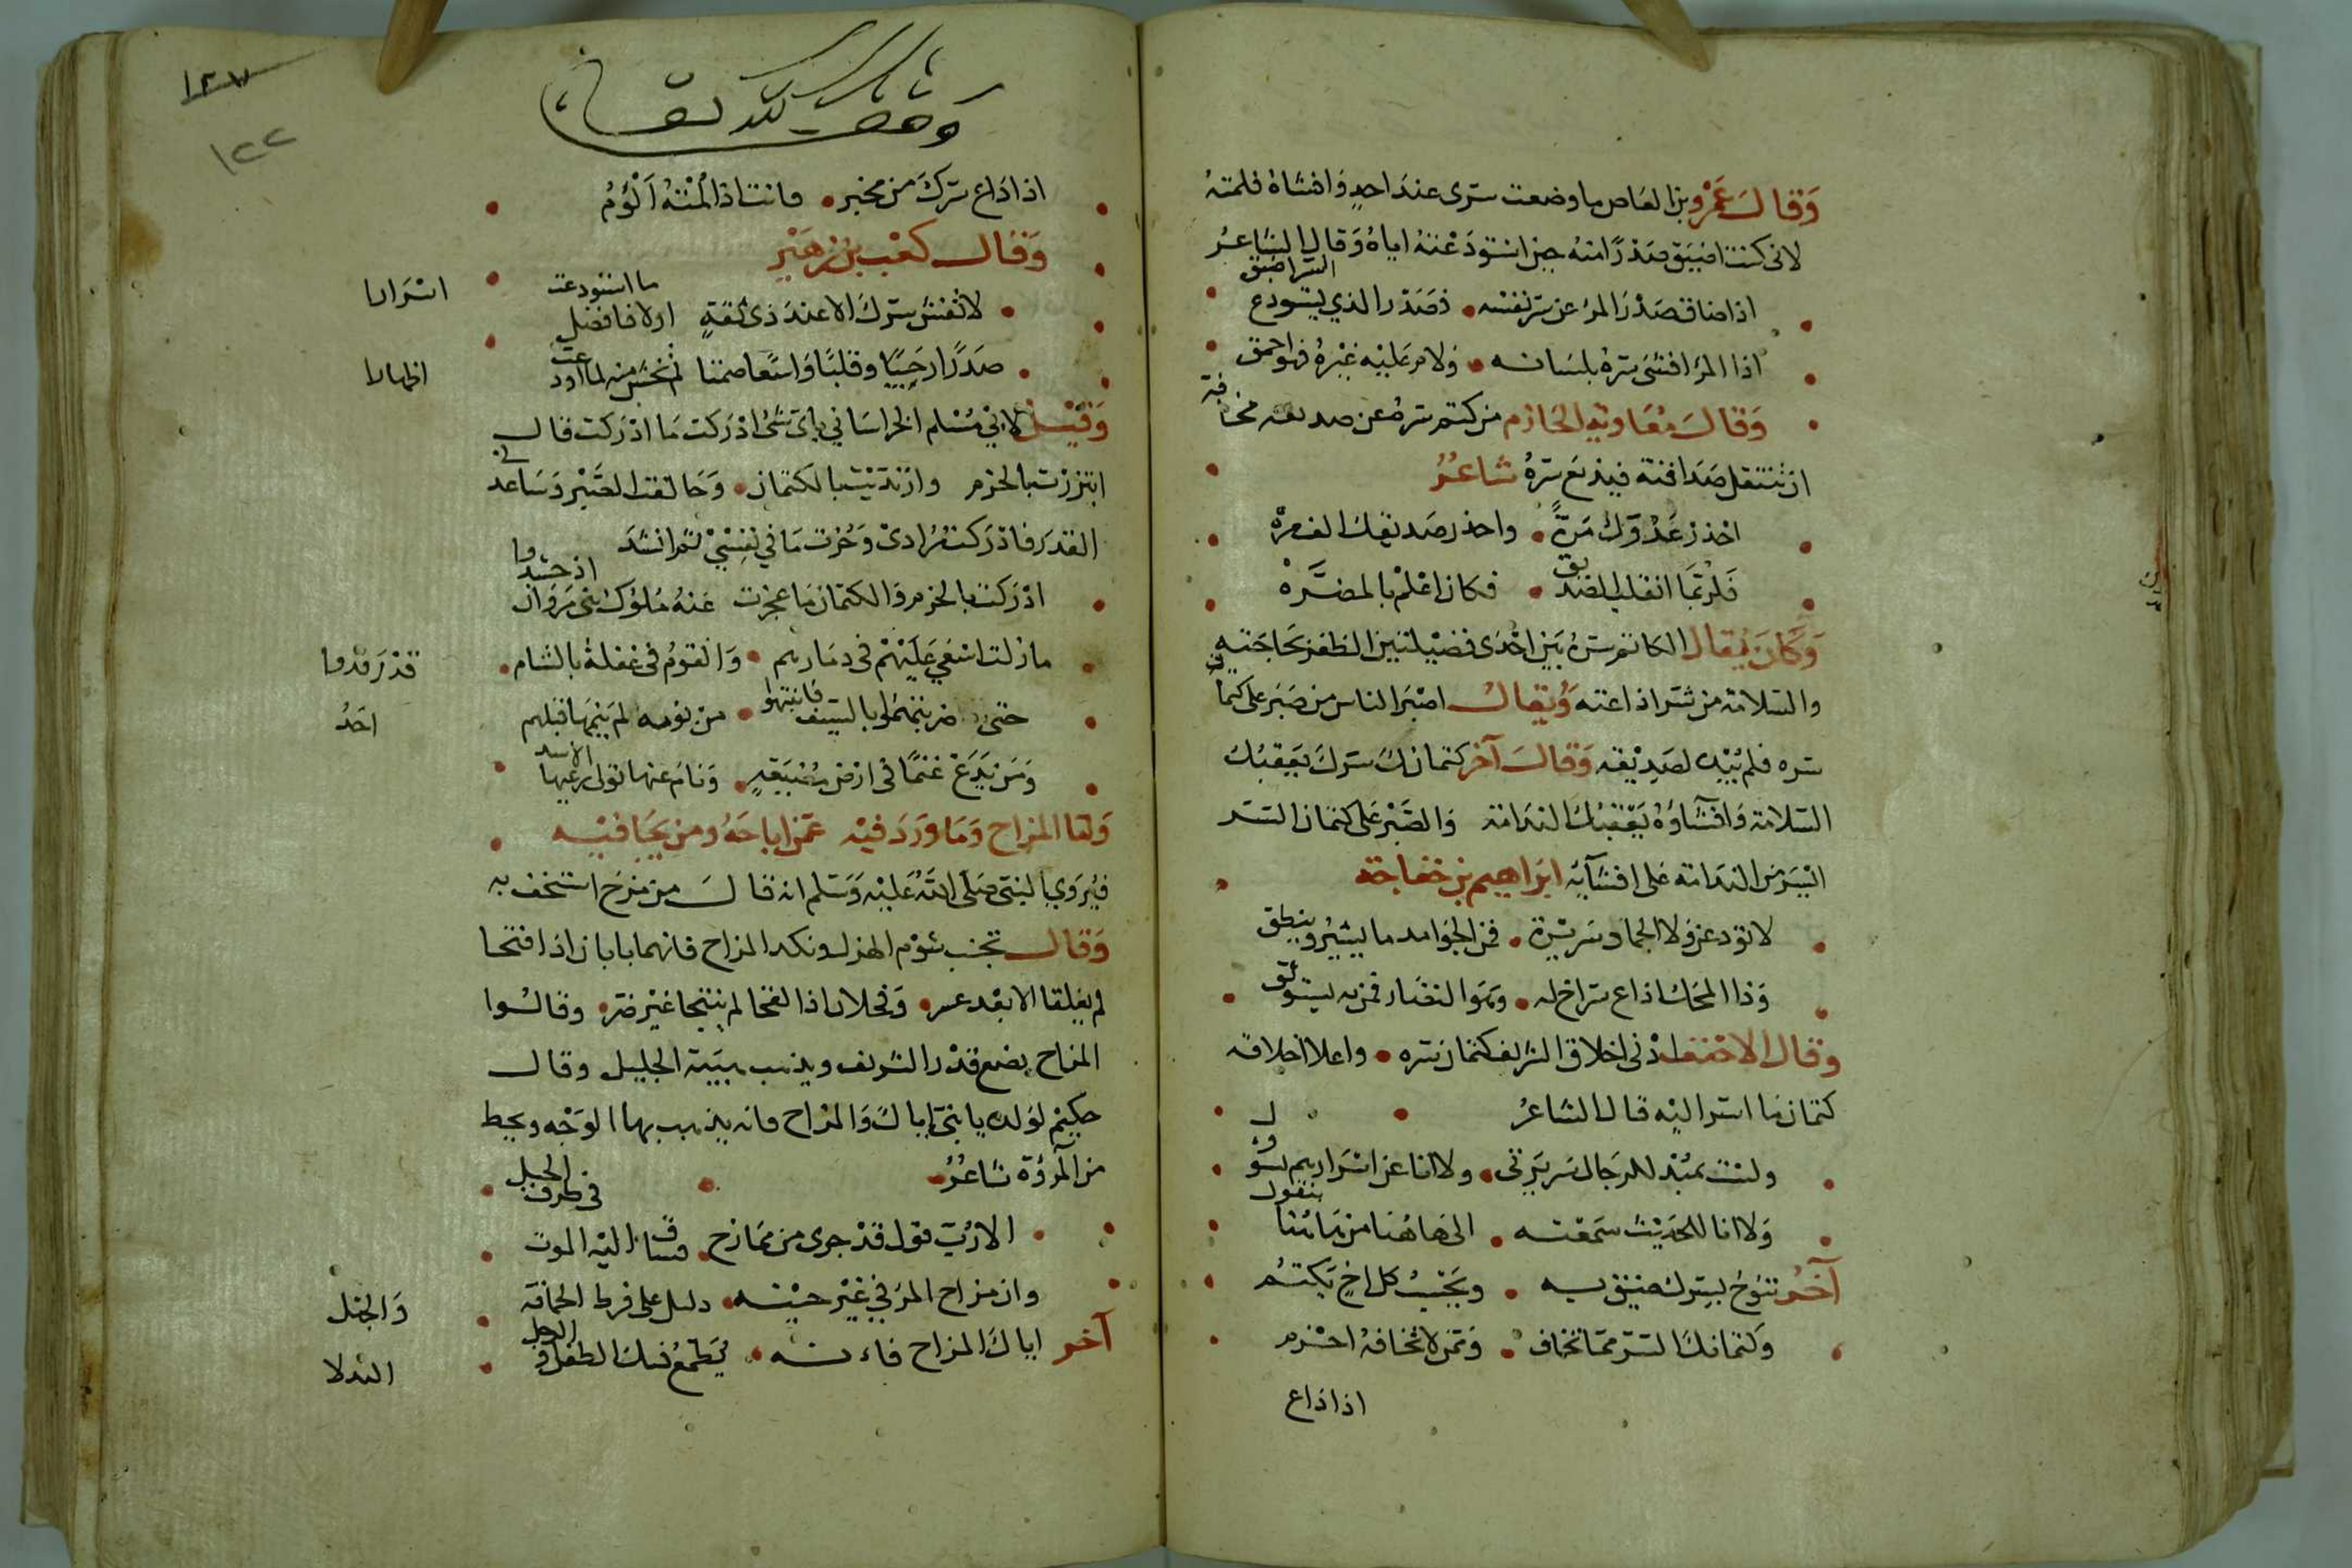 وَقَالَ عَمْرو بن العَاص ما وضعت سرى عندَ احدٍ وَافشاهُ فلمتهُ
لانى كنت اضيَق صَدْرًا منهُ حين استودَعْتهُ اياهُ وَقال الشاعرُ
اذا ضاق صَدْرَ المرءِ عن سرّ نفسه • فصَدْر الذي يستودع السّر اضيق
اذا المرْءُ افشى سرهُ بلسَانه • وَلام عَليْه غيْرهُ فهو احمق
وَقالَ مُعَاوية الحَازم من كتم سرهُ عن صديقه مخافة
ان تنتقل صَداقته فيذيع سرهُ شاعرُ
احْذرْ عَدُوّكَ مَرةً • واحذر صَديقك الف مرهْ
فَلرُبّمَا انقلب الصديق • فكان اعْلمْ بالمضَرَّهْ
وَكَانَ يُقال الكاتم سرهُ بَيْن احْدَى فضيْلتين الظفر بحَاجَته
والسّلامة من شرّ اذاعته وَيقال اصْبَر الناس من صَبَر على كتمان
سره فلم يُبْده لصَدِيْقه وَقالَ آخر كتمانكَ سركَ يعقبُك
السّلامة وَافشاؤهُ يعْقبُكَ الندَامة وَالصَّبْر على كتمان السّر
ايْسَر من الندَامة عَلى افشآئه ابراهيم بن خفاجة
لا تودعن وَلا الجماد سَريْرة • فمن الجوَامد ما يشيْرُ وينطق
وَذا المحَك اذاع سرّ اخ له • وهوَ النضَار فمن به يستوثق
وقال الاحْنف ادْنى اخلاق الشريف كتمان سره • واعلا اخلاقه
كتمان مَا اسرّ اليْه قال الشاعرُ
ولسْت بمُبْد للرجَال سَريرَتى • ولا انا عن اسْرَارهم بسَؤل
وَلا انا للحَدِيْث سَمعْته • الى هَاهُنا من هَاهُنا بنقول
آخرُ تبُوحُ بسِرّك ضيْق به • وَيَحْسبُ كل اخ يَكتمُ
وَكتمانكَ السّر ممّا تخاف • وَمَن لا تخافهُ احْزم
اذا ذاع
وقف لله تعالى
١٢٧
١٢٢
اذا ذَاع سَركَ من مخبر • فانت اذا لمْتهُ اَلْوَمُ
وَقال كعْب بن زهَيْر
لا تفش سركَ الا عندَ ذى ثقةٍ اولا فافضل ما استودعت اسْرَارا
صَدْرًا رَحيبًا وقلبًا وَاسعًا صَمتا لم تخش منه لما اودعت اظهارا
وَقيْل لابي مُسْلم الخراسَاني باى شئ ادْرَكت مَا ادْرَكت قال
ايتزرْت بالحْزم وارْتدَيْت بالكتمان • وَحَالفت الصّبْر وَسَاعدنى
القدَر فادْرَكت مُرادى وَحُزْت مَا في نفِسِيْ ثم انشدَ
ادْرَكت بالحزم وَالكتمان مَا عجزت عَنهُ مُلوُك بنى مَرْوَان اذ حشدوا
مازلت اسْعَي عَلَيْهمْ فى دمَارهم • وَالقومُ فى غفلة بالشام قدْ رَقدوا
حتى ضربتهمُ بالسّيْف فانتبهوا • من نومه لم يَنمهَا قبلهم احَدُ
وَمَن يَرْعَ غنمًا فى ارْض مُسْبَعَةٍ • وَنامَ عنها تولى رعْيها الاسد
وَاما المزاح وَمَا وَرَدَ فيْه عمّن اباحَهُ ومن يحَافيْه
فيُرْوي ان النبى صَلى اللهُ عَليْه وَسَلم انه قالَ من مزَحَ استخف به
وَقال تجنب شؤم الهزل ونكد المزاح فانهما بابان اذا فتحا
لم يغلقا الا بعْد عسر • وَفحلان اذا لقحا لم ينتجا غيْر ضرّ • وقالوا
المزاح يضع قدْر الشريف ويذهب هيْبَة الجليل وقال
حكيْم لوَلده يا بنيّ اياكَ وَالمزاح فانه يذهب بهاء الوَجْه ويحط
من المرُؤة شاعرُ
الا رُبّ قول قدْ جرى من ممَازح • فساق اليْه الموت فى طرف الحبل
وان مزاح المرْء في غيْر حيْنه • دليل على فرط الحماقة وَالجهْل
آخر اياكَ المزاح فاءنه • يُطمعُ فيك الطفل والرجل النذلا